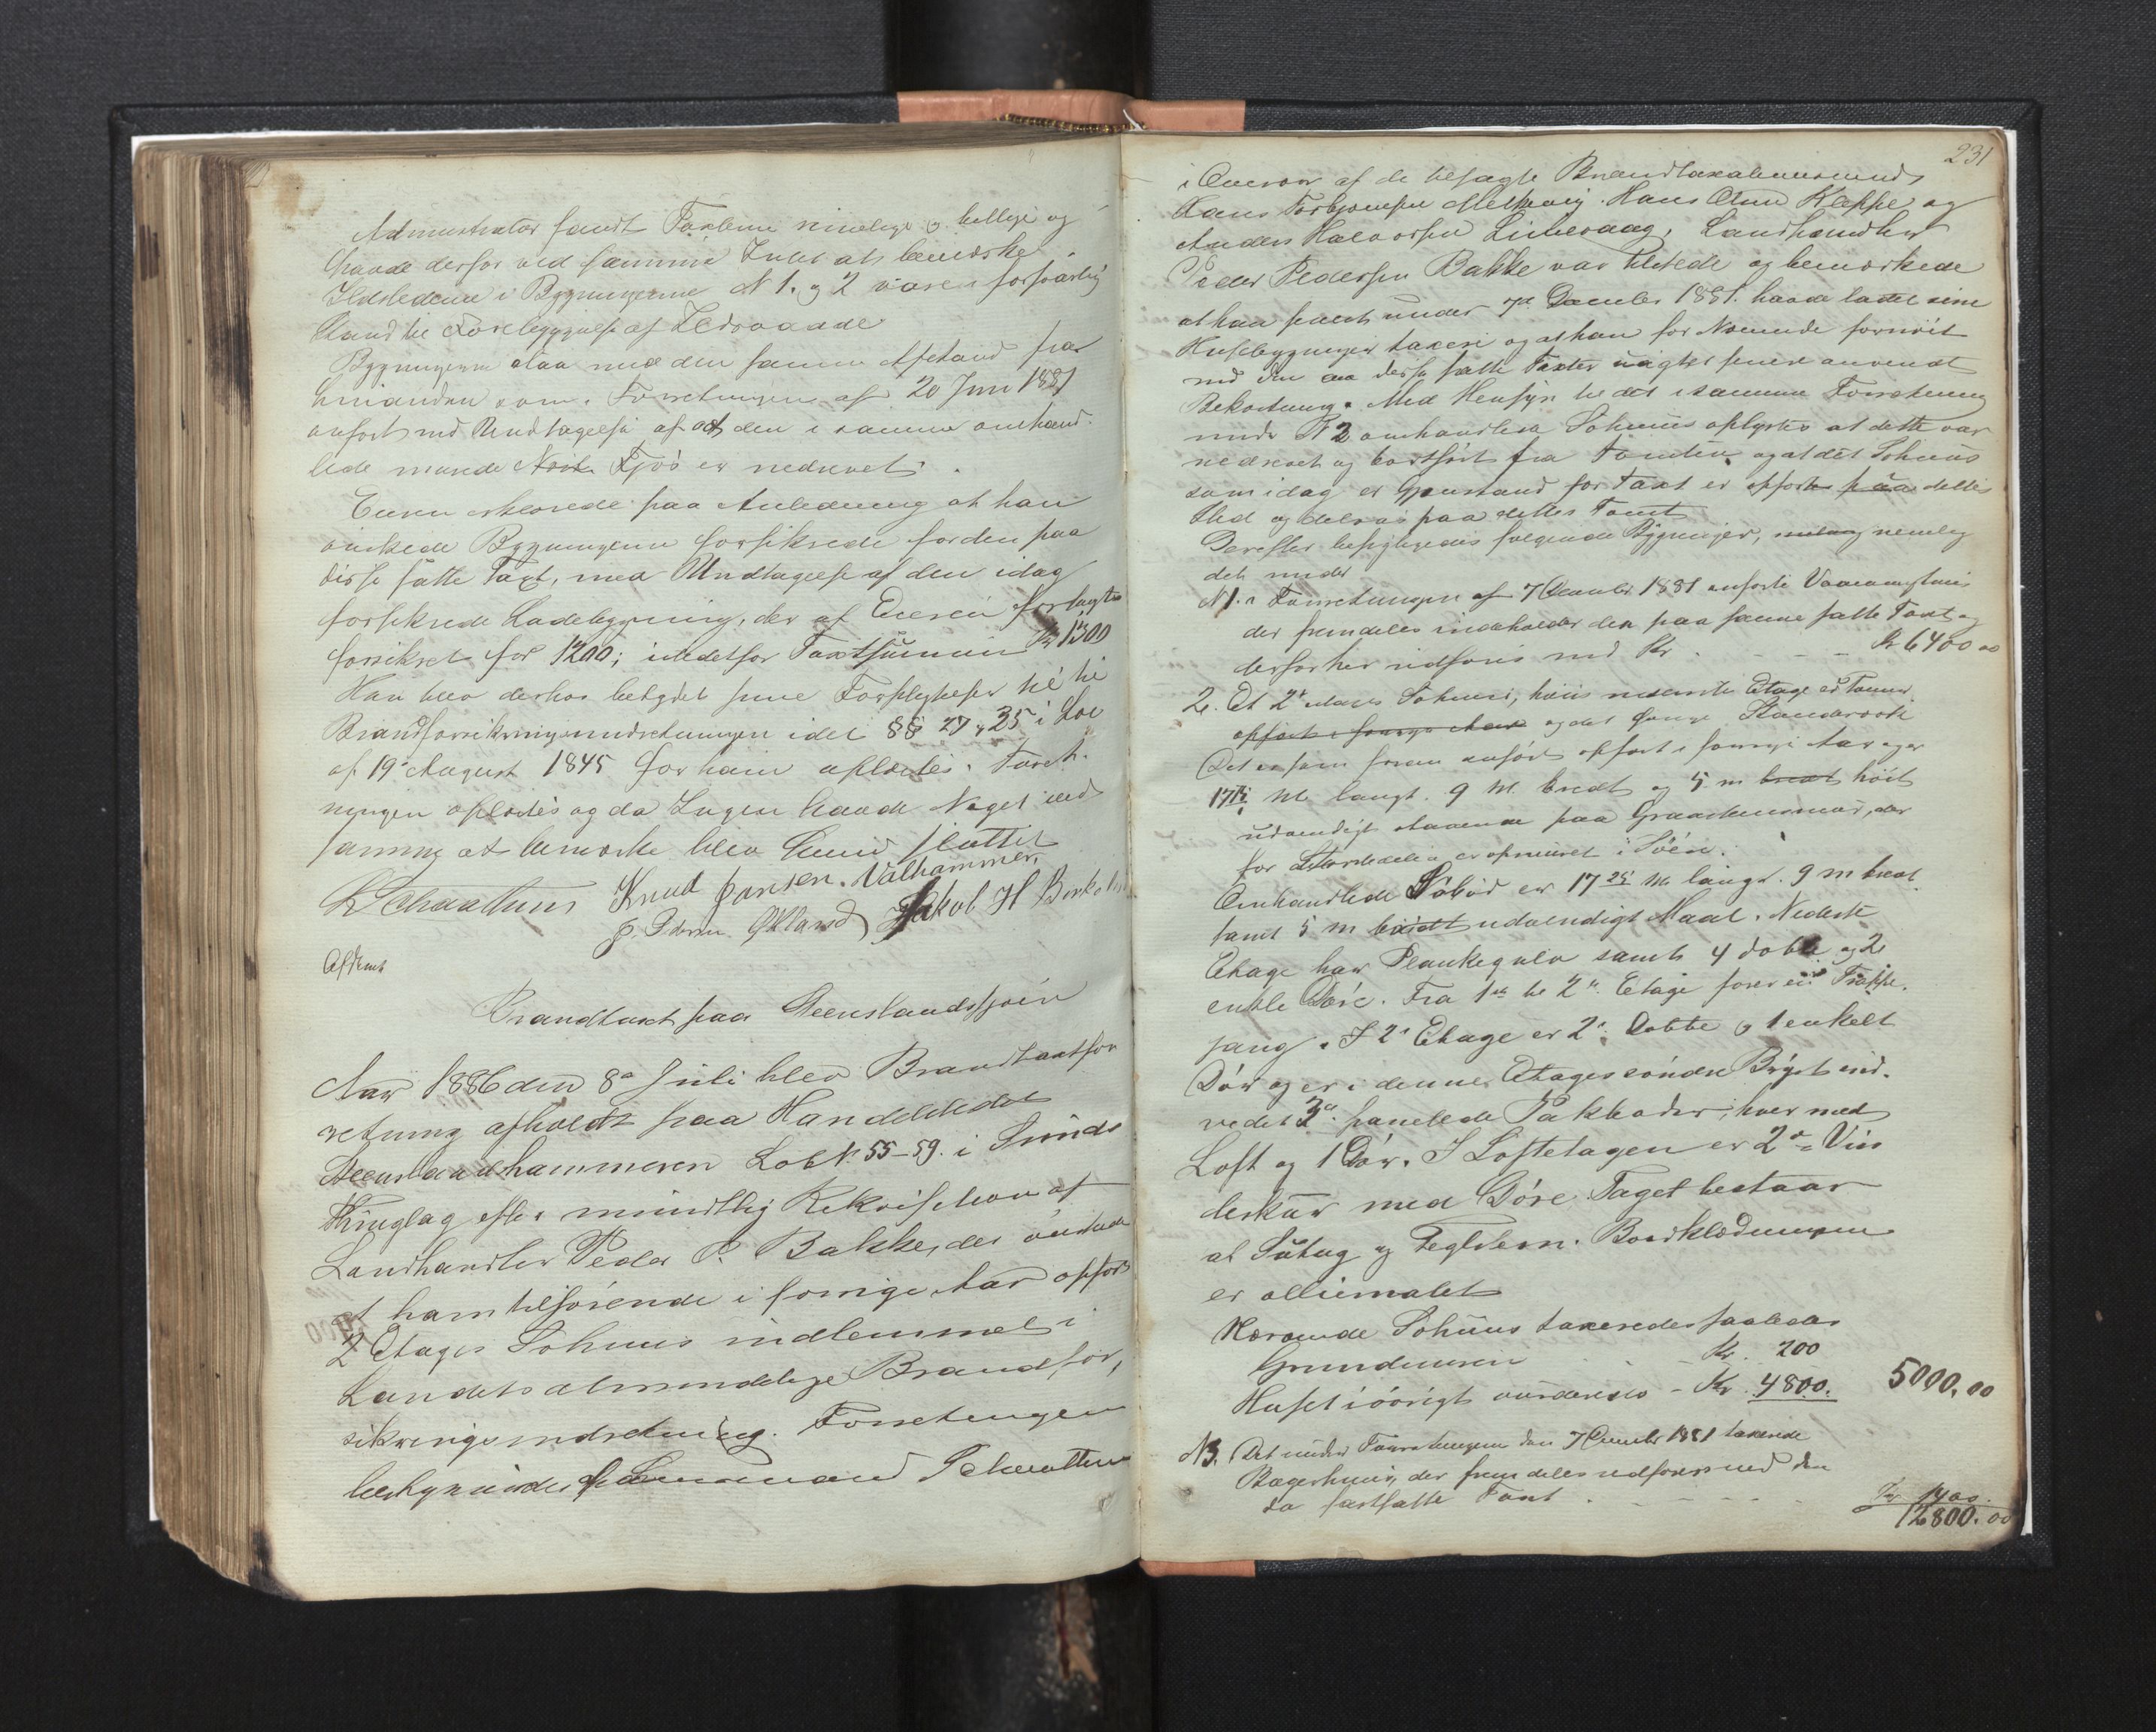 Administrator fandt Taxterne rimelige og billige og
havde derfor ved samme Intet at bemærke
Ildstederne i Bygningerne N 1. og 2 vare i forsvarlig
Stand til Forebyggelse af Ildsvaade
Bygningerne staa med den samme Afstand fra
hinanden som i Forretningen af 20 Juni 1881
anført med Undtagelse af at den i samme omhand-
lede murede Fjøs er nedrevet.
Eieren erklærede paa Anledning at han
ønskede Bygningerne forsikrede for den paa
disse satte Taxt, med Undtagelse af den idag
forsikrede Ladebygning, der af Eieren forlagtes
forsikret for 1200; istedetfor Taxtsummen Kr 1300
Han blev derhos betydet sine Forpligtelser til
Brandforsikringsindretningen idet §§ 27 og 35 i Lov
af 19 August 1845 for ham oplæstes. Forret-
ningen oplæstes og da Ingen havde Noget ved
samme at bemærke blev denne sluttet
Knud Jansen. Valhammer.
P. Økland Jakob H
Afskrevet
Brandtaxt paa Steenslandssjøen
Aar 1886 den 8de Juli blev Brandtaxtfor
retning afholdt paa Handelstedet
Steenslandhammeren Løb N. 55-59. i Finds
Thinglag efter mundtlig Rekvisition af
Landhandler Peder P. Bakke, der ønskede
et ham tilhørende i forrige Aar opført
2 Etages Søhuus indlemmet i
Landets almindelige Brandfor,
sikringsindretning. Forretningen
bestyredes af Lensmand
231
i Overvær af de besagte Brandtaxationsmænd
Hans Torbjørnsen Hans Olsen Kleppe og
Anders Halvorsen Landhandler
Peder Pedersen Bakke var tilstede og bemærkede
at han senest under 7de December 1881. havde ladet sine
Husebygninger taxere og at han for Nærværende fornøiet
med den paa disse satte Taxter uagtet senere anvendt
Bekostning. Med Hensyn til det i samme Forretning
under N 2 omhandlede Søhuus oplystes at dette var
nedrevet og bortført fra Tomten, og at det Søhuus
som idag er Gjenstand for Taxt er opført paa dettes
Sted og delvis paa dettes Tomt
Derefter besigtigedes følgende Bygninger, nemlig
det under
N 1. i Forretningen af 7 December 1881 anførte Vaaningshuus
der fremdeles indeholder den paa samme satte Taxt og
derfor her udføres med Kr. - - - Kr 6400 00
2. Et 2de Etages Søhuus, hvis nederste Etage er Tømmer
opført i forrige Aar og det øvrige Standværk
Det er som foran anført opført i forrige Aar og er
17 25 M. langt. 9 M. bredt og 5 m bredt høit
udvendigt staaende paa Graasteensmuur, der
for Størstedelen er opmuret i Søen.
Omhandlede Søbod er 17 25 M. langt. 9 m bredt
samt 5 m udvendigt Maal. Nederste
Etage har Plankegulv samt 4 doble og 2
enkle Døre. Fra 1ste til 2den Etage fører en Trappe,
gang. I 2den Etage er 2de Dobbe og 1 enkelt
Dør og er i denne Etages søndre Bryst ind-
redet 3de panelede Pakboder, hver med
Loft og 1 Dør. I Loftetagen er 2de Vin
deskur med Døre Taget bestaar
af Sutag og Teglsteen. Bordklædningen
er oliemalet
Nærværende Søhuus taxeredes saaledes
Grundmuren - Kr. 200
Huset iøvrigt vurderedes - Kr. 4800. 5000.00
N3. Det under Forretningen den 7 December 1881 taxerede
Bagerhuus, der fremdeles udføres med den
da fastsatte Taxt - - - - 1400.
12800.00